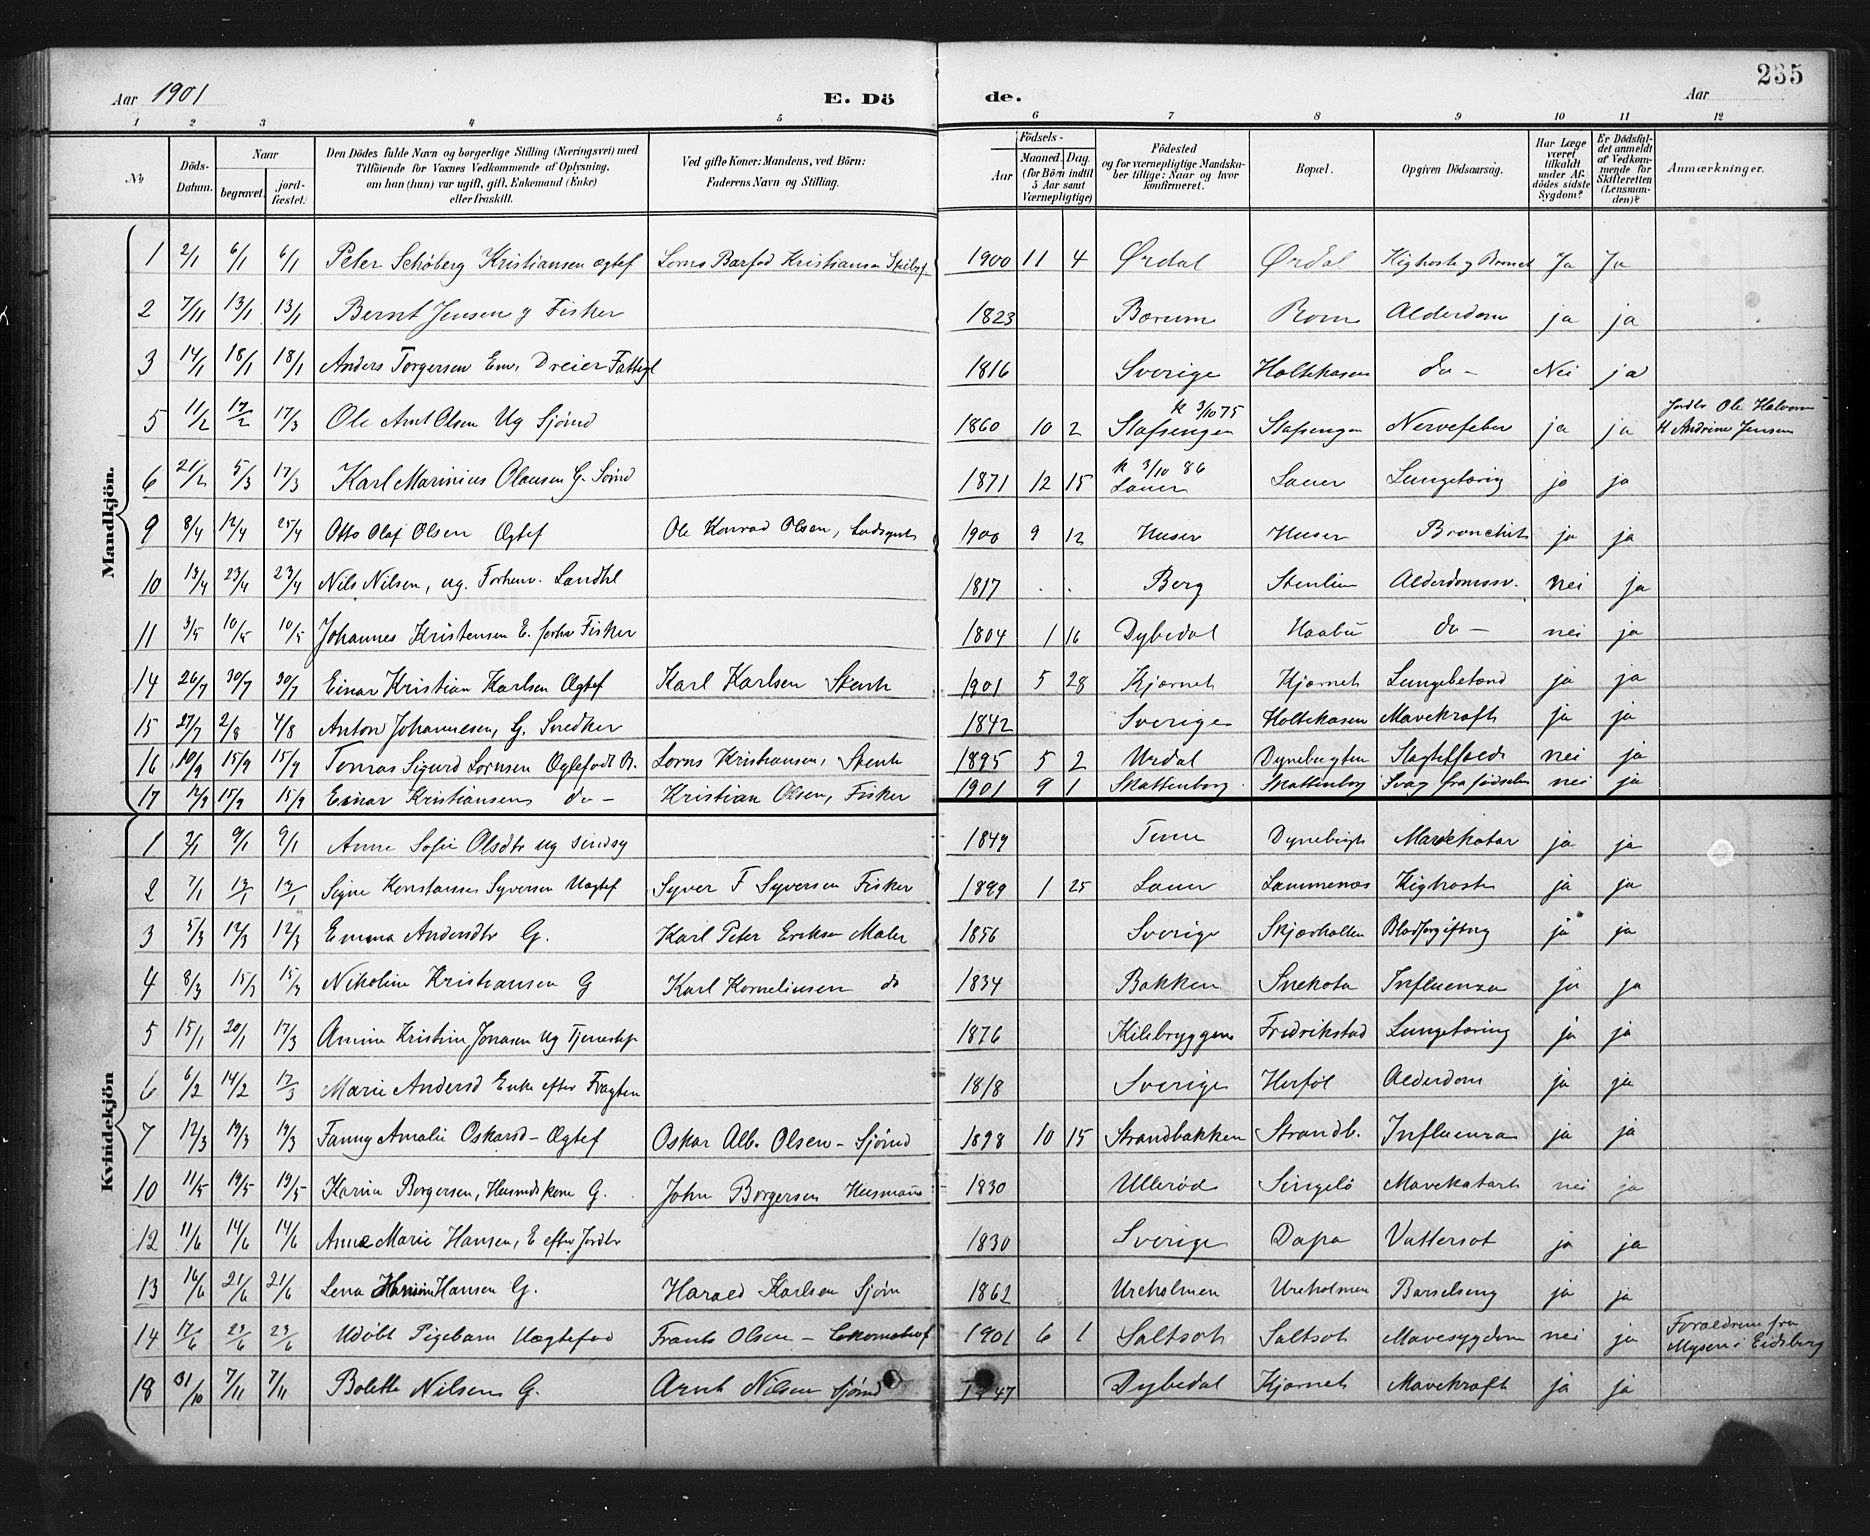 235
Aar 1901 E. Dö de. Aar
1 2 3 4 5 6 7 8 9 10 11 12
№
Döds-Datum.
Naar
begravet.
jord-fæstet.
Den Dödes fulde Navn og borgerlige Stilling (Næringsvei) med
Tilföiende for Voxnes Vedkommende af Oplysning,
om han (hun) var ugift, gift, Enkemand (Enke)
eller fraskilt.
Ved gifte Koner: Mandens, ved Börn:
Faderens Navn og Stilling.
Födsels-
Aar
Maaned. Dag.
(for Börn indtil
5 Aar samt
Værnepligtige)
Födested
og for værnepligtige Mandska-
ber tillige: Naar og hvor
konfirmeret.
Bopæl.
Opgiven Dödsaarsag.
Har Læge
været
tilkaldt
under Af-
dödes sidste
Sygdom?
Er Dödsfal-
det anmeldt
af Vedkom-
mende for
Skifteretten
(Lensman-
den)?
Anmærkninger.
Mandkjön.
1 2/1 6/1 6/1 Peter Schøberg Kristiansen ægtef Lorns Barfod Kristiansen 1900 11 4 Ørdal Ørdal Kighoste og Bronch Ja Ja
2 7/11 13/1 13/1 Bernt Jensen g Fisker 1823 Bærum Rom Alderdom ja ja
3 14/1 18/1 18/1 Anders Torgersen Em. Dreier Fattigl 1816 Sverige Holtekasen do - Nei ja
5 11/2 17/2 17/3 Ole Ant Olsen Ug Sjømd 1860 10 2 k 3/10 75 Stafsengen Stafsengen Nervefeber ja ja Jordbr Ole Halvorsen
H Andrine Jensen
6 21/2 5/3 17/3 Karl Marinius Olausen G. Sømd 1871 12 15 k 3/10 86 Lauer Lauer Lungetæring ja ja
9 8/4 12/4 25/4 Otto Olaf Olsen Ægtef Ole Konrad Olsen, 1900 9 12 Huser Huser Bronchit ja ja
10 19/4 23/4 23/4 Nils Nilsen, ug. Forhenv. Landhl 1817 Berg Stenlien Alderdomssv. nei ja
11 3/5 10/5 10/5 Johannes Kristensen E. forhv Fisker 1804 1 16 Dybedal Haabu do - nei ja
14 26/7 30/7 30/7 Einar Kristian Karlsen Ægtef Karl Karlsen Stenh 1901 5 28 Kjærnet Kjærnet Lungebetænd ja ja
15 27/7 2/8 4/8 Anton Johannesen, G. Snedker 1842 Sverige Holtekasen Mavekræft ja ja
16 10/9 15/9 15/9 Tomas Sigurd Lornsen Ægtefødt B. Lorns Kristiansen, Stenh 1895 5 2 Urdal Dynebugten nei ja
17 12/9 15/9 15/9 Einar Kristiansen do - Kristian Olsen, Fisker 1901 9 1 Skattenborg Skattenborg Svag fra födselen nei ja
Kvindekjön
1 9/1 9/1 Anne Sofie Olsdtr ug sindsyg 1849 Tune Dynebugt Mavekatar ja ja
2 7/1 13/1 13/1 Signe Konstanse Syversen Uægtef Syver F Syversen Fisker 1899 1 25 Lauer Lammenæs Kighoste ja ja
3 5/3 12/3 12/3 Emma Andersdtr G. Karl Peter Eriksen Maler 1856 Sverige Skjærhallen Blodforgiftning ja ja
4 8/3 15/3 15/3 Nikoline Kristiansen G Karl Korneliusen do 1834 Bakken Snekota Influenza ja ja
5 15/1 20/1 17/3 Amine Kristine Jonasen Ug Tjenestep 1876 Kilebryggen Fredrikstad Lungetæring ja ja
6 6/2 14/2 17/3 Marie Andersd Enke efter Fragtem 1818 Sverige Herføl Alderdom ja ja
7 12/3 19/3 19/3 Fanny Amalie Oskarsd - Ægtef Oskar Alb. Olsen - Sjømd 1898 10 15 Strandbakken Strandb. Influenza ja ja
10 11/5 19/5 19/5 Karine Borgersen, Husmdskone G. John Borgersen Husmand 1830 Ullerød Singelö Mavekatarh nei ja
12 11/6 14/6 14/6 Anne Marie Hansen, E efter Jordbr 1830 Sverige Dapa Vattersot ja ja
13 16/6 21/6 21/6 Lena Hansen G. Harald Karlsen Sjöm 1862 Ureholmen Ureholmen Barselseng ja ja
14 17/6 23/6 23/6 Udöbt Pigebarn Uægtefød Frants Olsen - Lokomotivf 1901 6 1 Saltsot Saltsot Mavesygdom nei ja Forældrene fra
Mysen i Eidsberg
18 31/10 7/11 7/11 Bolette Nilsen G. Arnt Nilsen Sjømd 1847 Dybedal Kjærnet Mavekræft ja ja